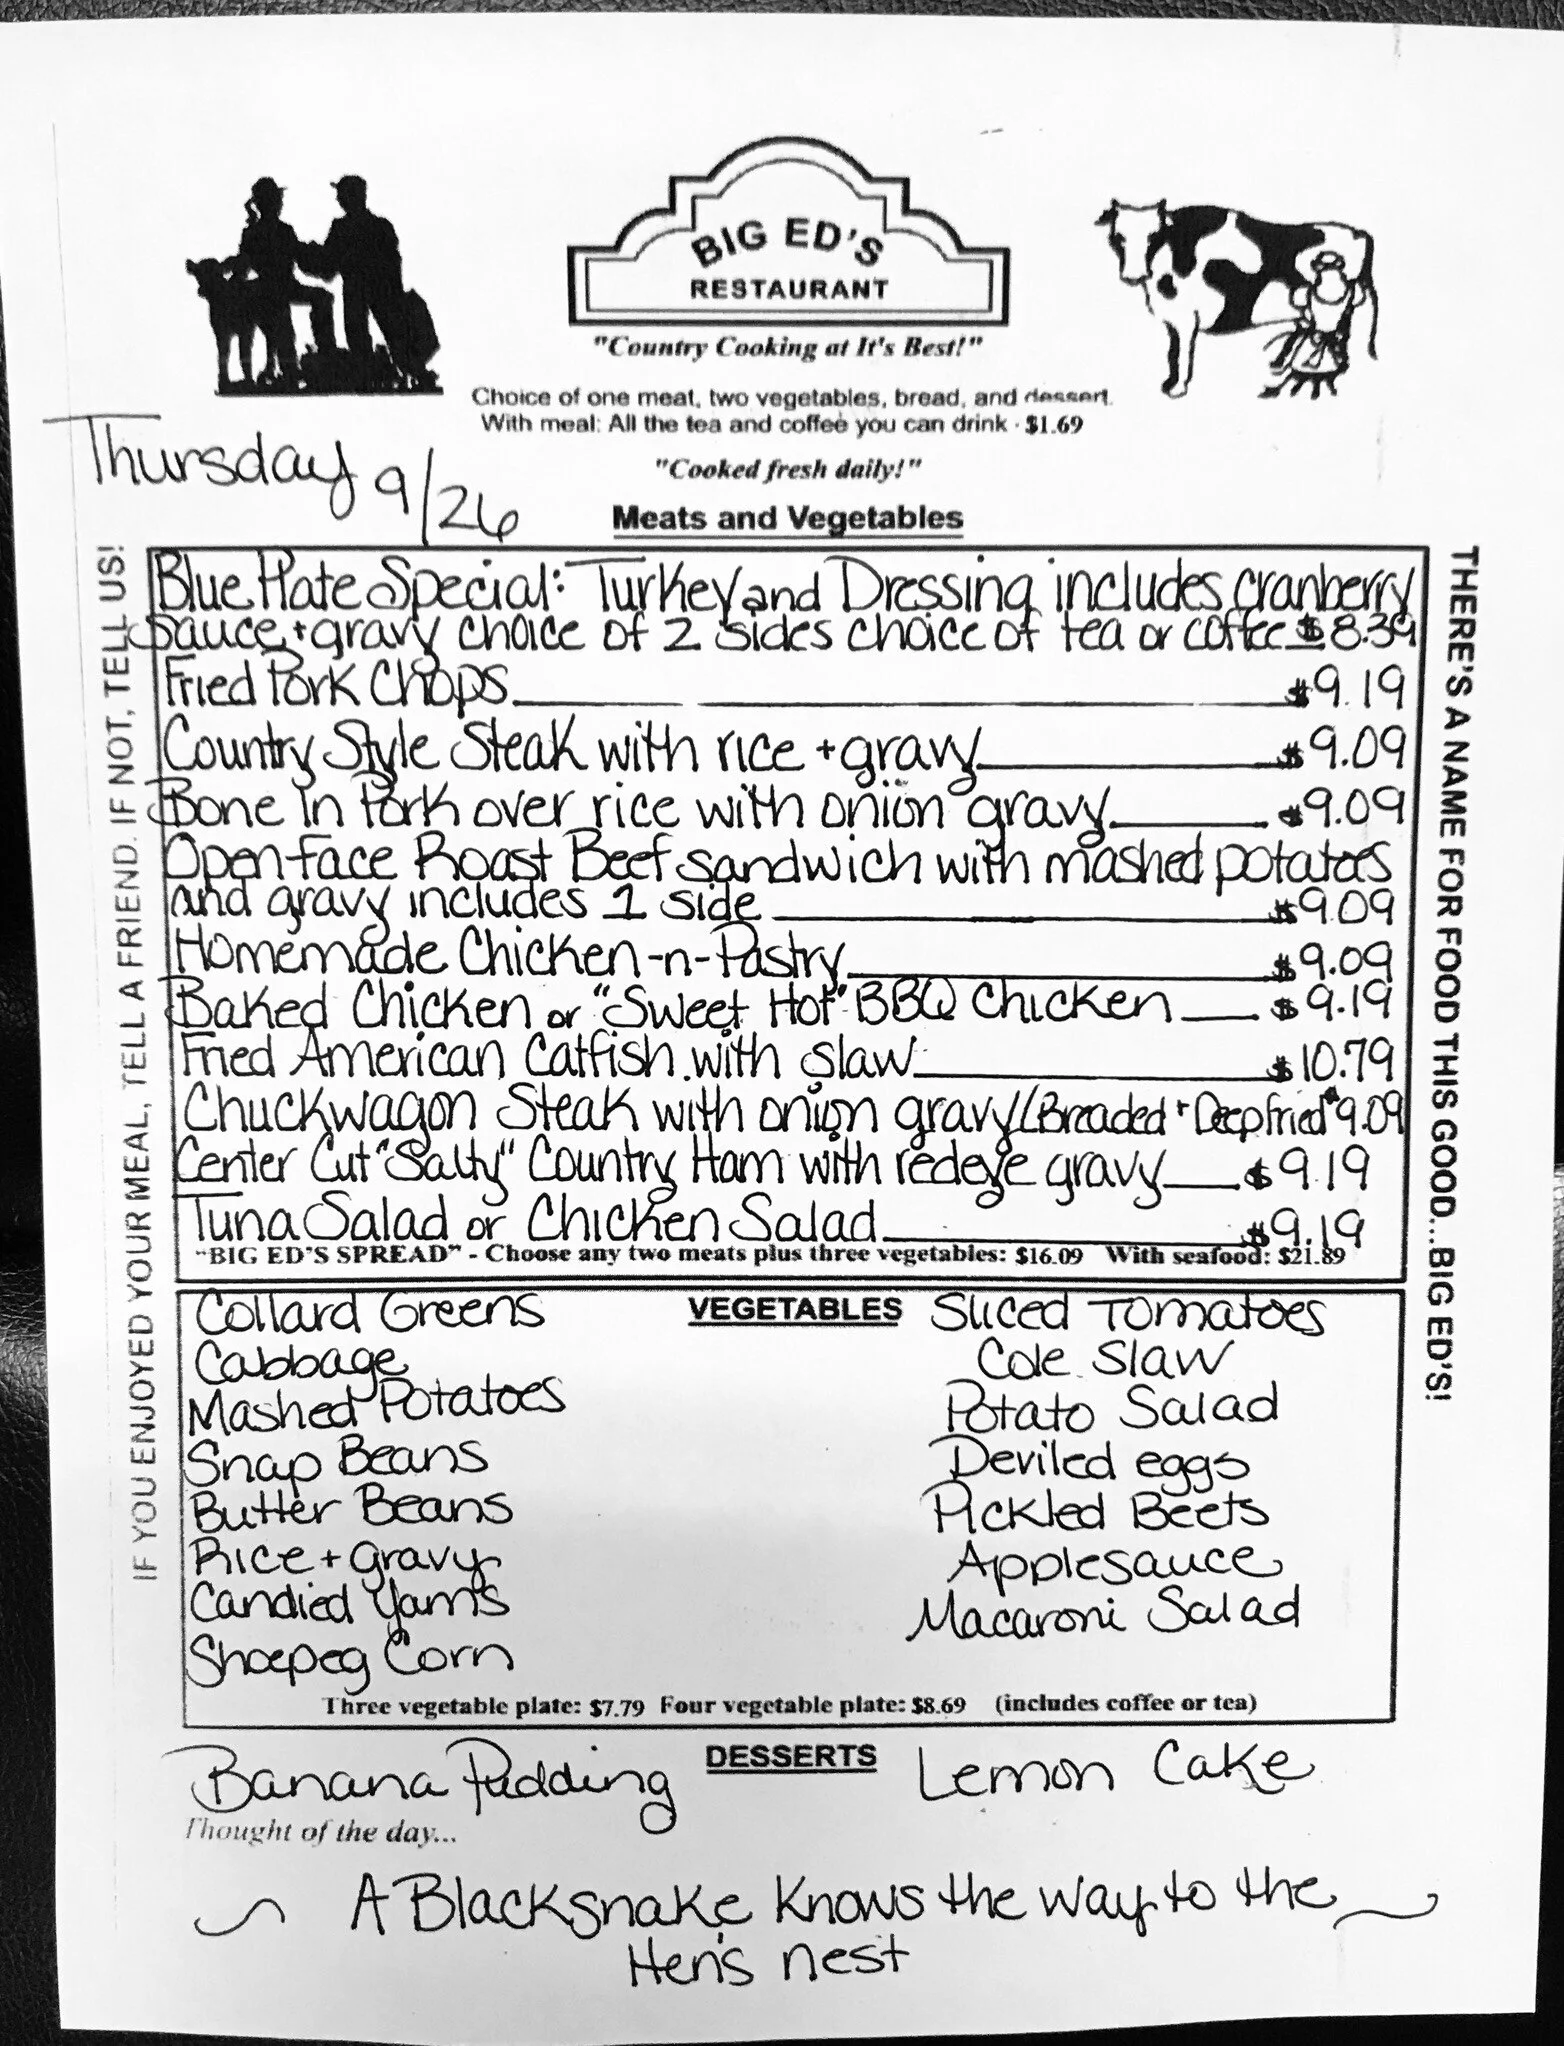 BIG ED'S
RESTAURANT
"Country Cooking at It's Best!"
Choice of one meat, two vegetables, bread, and dessert.
With meal: All the tea and coffee you can drink - $1.69
Thursday 9/26
"Cooked fresh daily!"
Meats and Vegetables
IF YOU ENJOYED YOUR MEAL, TELL A FRIEND. IF NOT, TELL US!
Blue Plate Special: Turkey and Dressing includes cranberry
sauce + gravy choice of 2 sides choice of tea or coffee $8.39
Fried Pork Chops $9.19
Country Style Steak with rice + gravy $9.09
Bone in Pork over rice with onion gravy $9.09
Open-face Roast Beef sandwich with mashed potatoes
and gravy includes 1 side $9.09
Homemade Chicken-n-Pastry $9.09
Baked Chicken or "Sweet Hot" BBQ Chicken $9.19
Fried American Catfish with slaw $10.79
Chuckwagon Steak with onion gravy (Breaded + Deep fried $9.09
Center Cut "Salty" Country Ham with redeye gravy $9.19
Tuna Salad or Chicken Salad $9.19
"BIG ED'S SPREAD" - Choose any two meats plus three vegetables: $16.09 With seafood: $21.89
THERE'S A NAME FOR FOOD THIS GOOD...BIG ED'S!
VEGETABLES
Collard Greens
Cabbage
Mashed Potatoes
Snap Beans
Butter Beans
Rice + gravy
Candied Yams
Shoepeg Corn
Sliced Tomatoes
Cole Slaw
Potato Salad
Deviled eggs
Pickled Beets
Applesauce
Macaroni Salad
Three vegetable plate: $7.79 Four vegetable plate: $8.69 (includes coffee or tea)
DESSERTS
Banana Pudding
Lemon Cake
Thought of the day...
A Blacksnake knows the way to the
Hen's nest